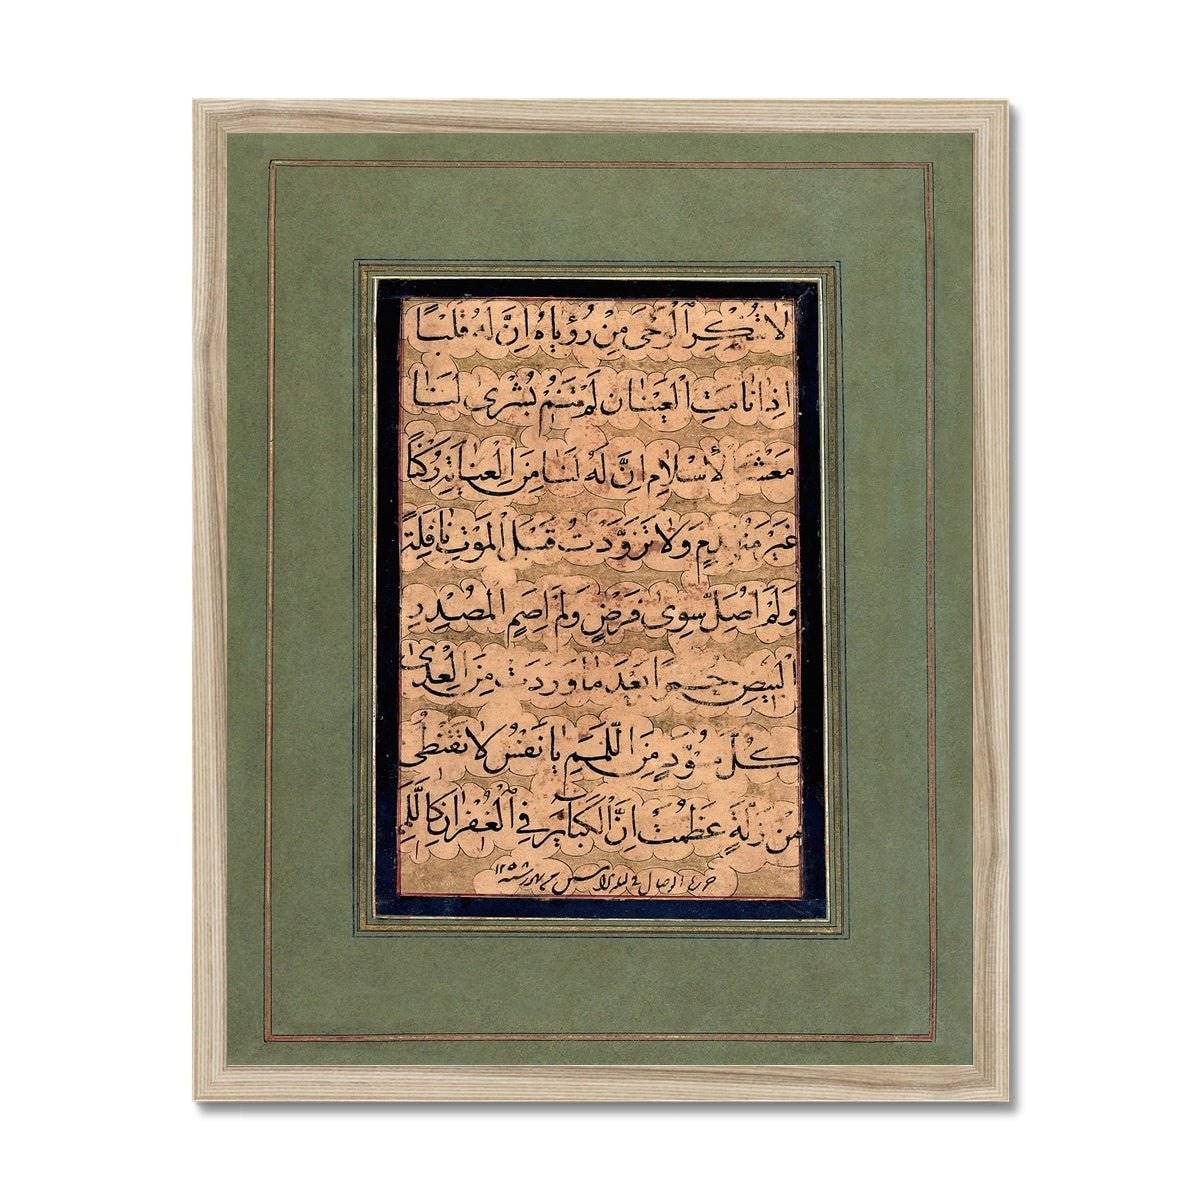 لا تنكر الوحى من رؤياه ان له قلبا
اذا نامت العينان لم تنم بشرى لنا
معشر الاسلام ان له لنا من العناية ركنا
غير منهدم ولا تزودت قبل الموت نافلة
ولم اصل سوى فرض ولم اصم المصدر
البيض حمرا بعد ما وردت من العدى
كل مسود من اللمم يا نفس لا تقنطى
من زلة عظمت ان الكباير فى الغفران كاللمم